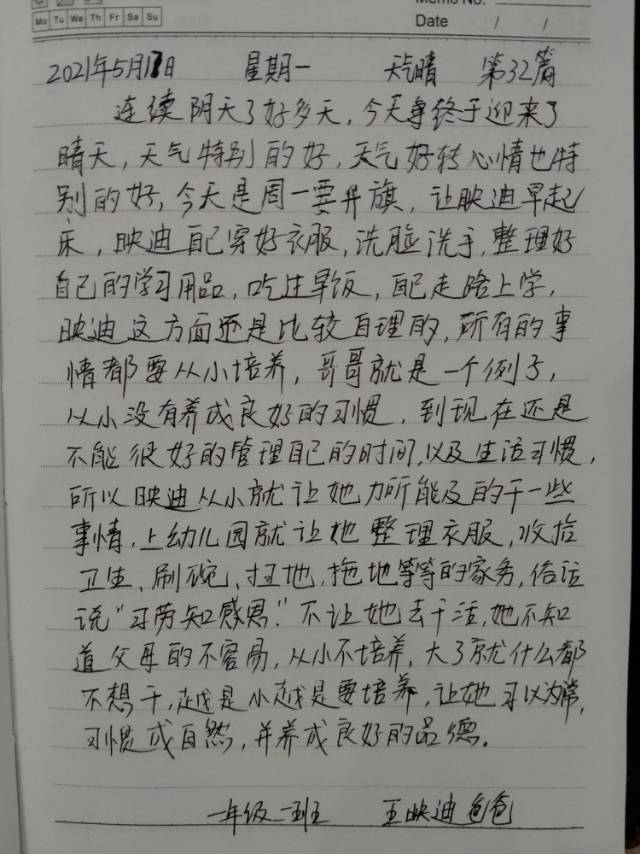 Memo No.
Mo Tu We Th Fr Sa Su
Date / /
2021年5月17日 星期一 天气晴 第32篇
连续阴天了好多天，今天终于迎来了
晴天，天气特别的好，天气好转心情也特
别的好，今天是周一要升旗，让映迪早起
床，映迪自己穿好衣服，洗脸洗手，整理好
自己的学习用品，吃过早饭，自己走路上学，
映迪这方面还是比较自理的，所有的事
情都要从小培养，哥哥就是一个例子，
从小没有养成良好的习惯，到现在还是
不能很好的管理自己的时间，以及生活习惯，
所以映迪从小就让她力所能及的干一些
事情，上幼儿园就让她整理衣服，收拾
卫生、刷碗、扫地，拖地等等的家务，俗话
说“习劳知感恩。”不让她去干活，她不知
道父母的不容易，从小不培养，大了就什么都
不想干，越是小越是要培养，让她习以为常，
习惯成自然，并养成良好的品德。
一年级一班 王映迪爸爸